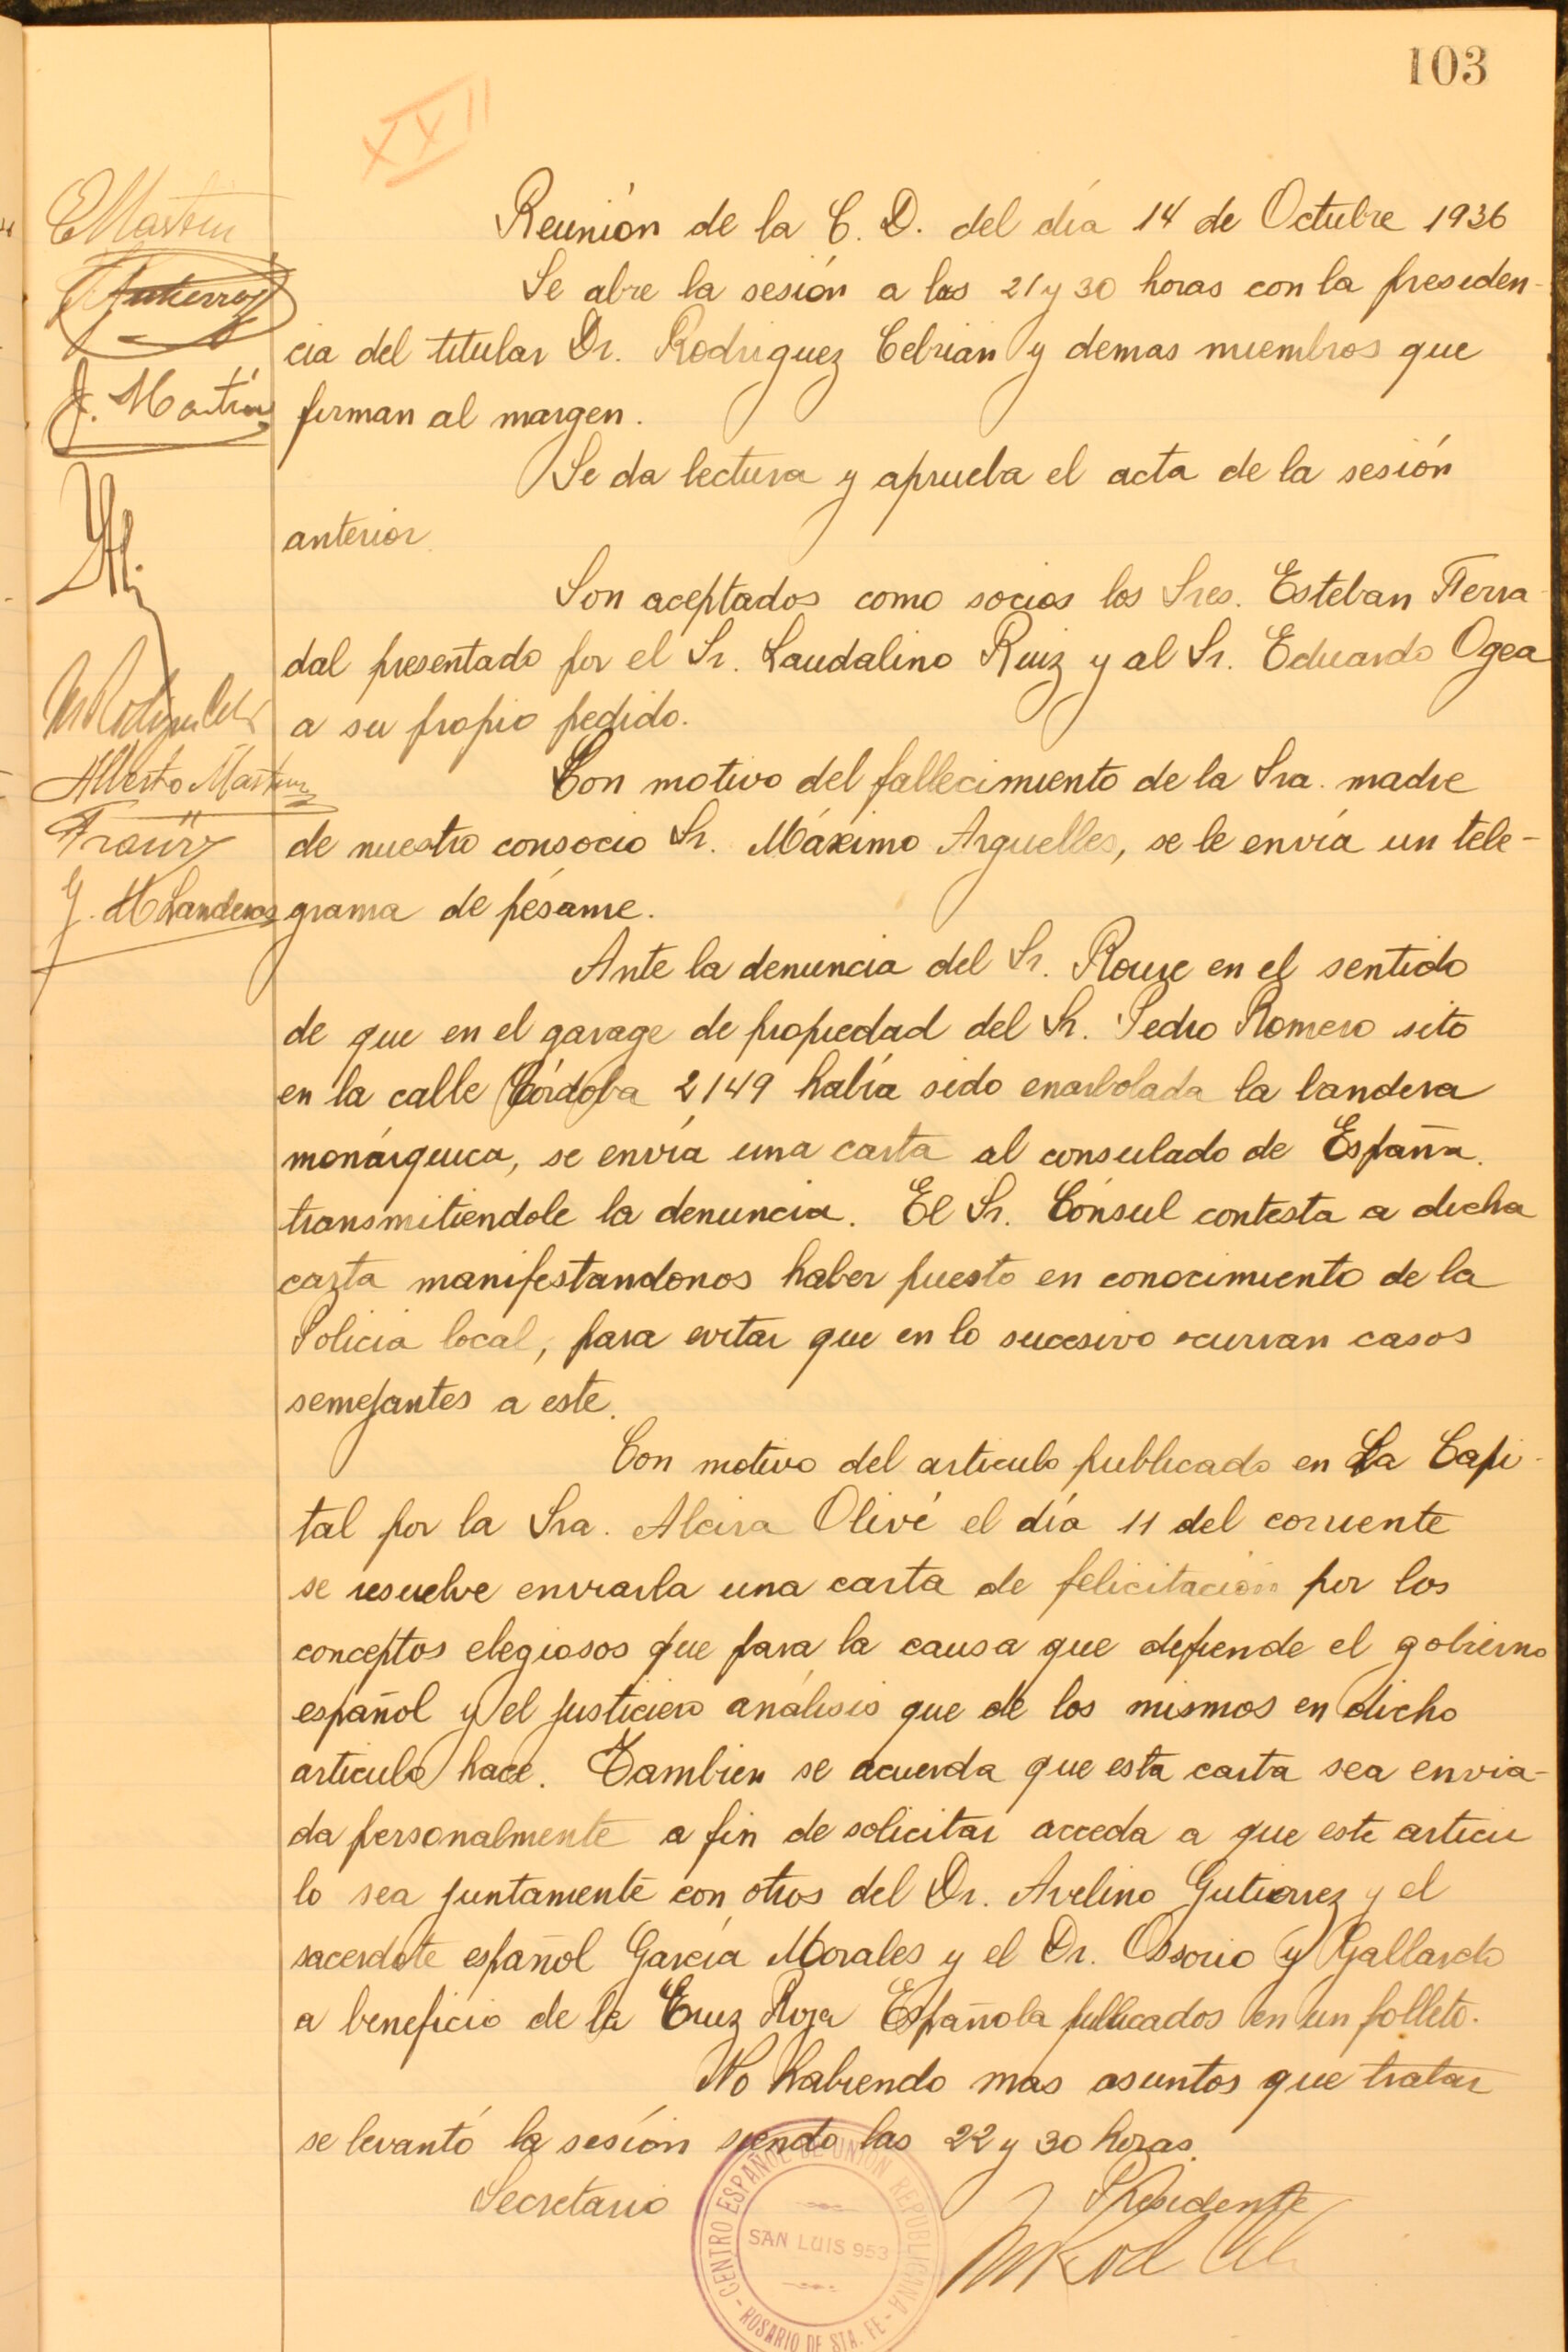 103
XXII
Reunión de la C. D. del día 14 de Octubre 1936
Se abre la sesión a las 21 y 30 horas con la presiden-
cia del titular Dr. Rodriguez Cebrian y demas miembros que
firman al margen.
Se da lectura y aprueba el acta de la sesión
anterior.
Son aceptados como socios los Sres. Esteban Terra-
dal presentado por el Sr. Laudalino Ruiz y al Sr. Eduardo Ogea
a su propio pedido.
Con motivo del fallecimiento de la Sra. madre
de nuestro consocio Sr. Máximo Arguelles, se le envía un tele-
grama de pésame.
Ante la denuncia del Sr. Roure en el sentido
de que en el garage de propiedad del Sr. Pedro Romero sito
en la calle Córdoba 2149 había sido enarbolada la bandera
monárquica, se envía una carta al consulado de España
transmitiendole la denuncia. El Sr. Cónsul contesta a dicha
carta manifestandonos haber puesto en conocimiento de la
Policia local, para evitar que en lo sucesivo ocurran casos
semejantes a este.
Con motivo del articulo publicado en La Capi-
tal por la Sra. Alcira Olivé el día 11 del corriente
se resuelve enviarla una carta de felicitación por los
conceptos elegiosos que para la causa que defiende el gobierno
español y el justiciero análisis que de los mismos en dicho
articulo hace. Tambien se acuerda que esta carta sea envia-
da personalmente a fin de solicitar acceda a que este articu
lo sea juntamente con otros del Dr. Avelino Gutierrez y el
sacerdote español García Morales y el Dr. Ossorio y Gallardo
a beneficio de la Cruz Roja Española publicados en un folleto.
No habiendo mas asuntos que tratar
se levantó la sesión siendo las 22 y 30 horas.
Secretario Presidente
EMartin
Gutierrez
J. Martin
Alberto Martin
J. M Landeras
CENTRO ESPAÑOL DE UNION REPUBLICANA
SAN LUIS 953
ROSARIO DE STA. FE